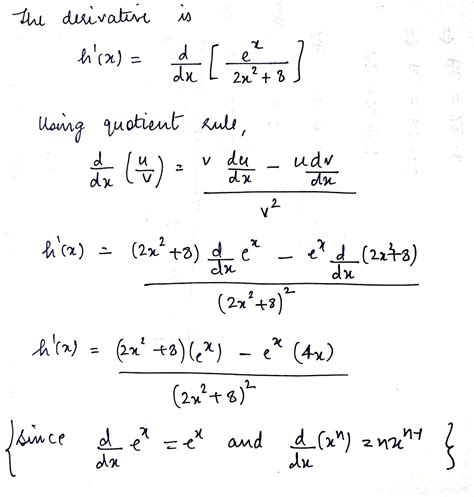 The derivative is
h'(x) = d/dx [ e^x / (2x² + 8) ]
Using quotient rule,
d/dx (u/v) = (v du/dx - u dv/dx) / v²
h'(x) = ((2x² + 8) d/dx e^x - e^x d/dx (2x² + 8)) / (2x² + 8)²
h'(x) = ((2x² + 8)(e^x) - e^x (4x)) / (2x² + 8)²
{ since d/dx e^x = e^x and d/dx (x^n) = nx^(n-1) }